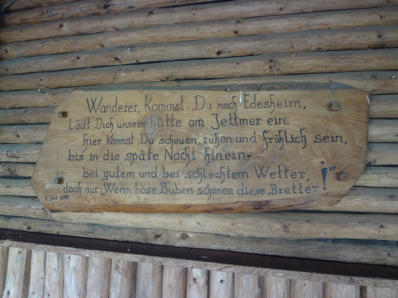 Wanderer, kommst Du nach Edesheim,
lädt Dich unsere Hütte am Jettmer ein.
hier kannst Du schauen, ruhen und fröhlich sein,
bis in die späte Nacht hinein-
bei gutem und bei schlechtem Wetter,
doch nur: Wenn böse Buben schonen diese Bretter-!"